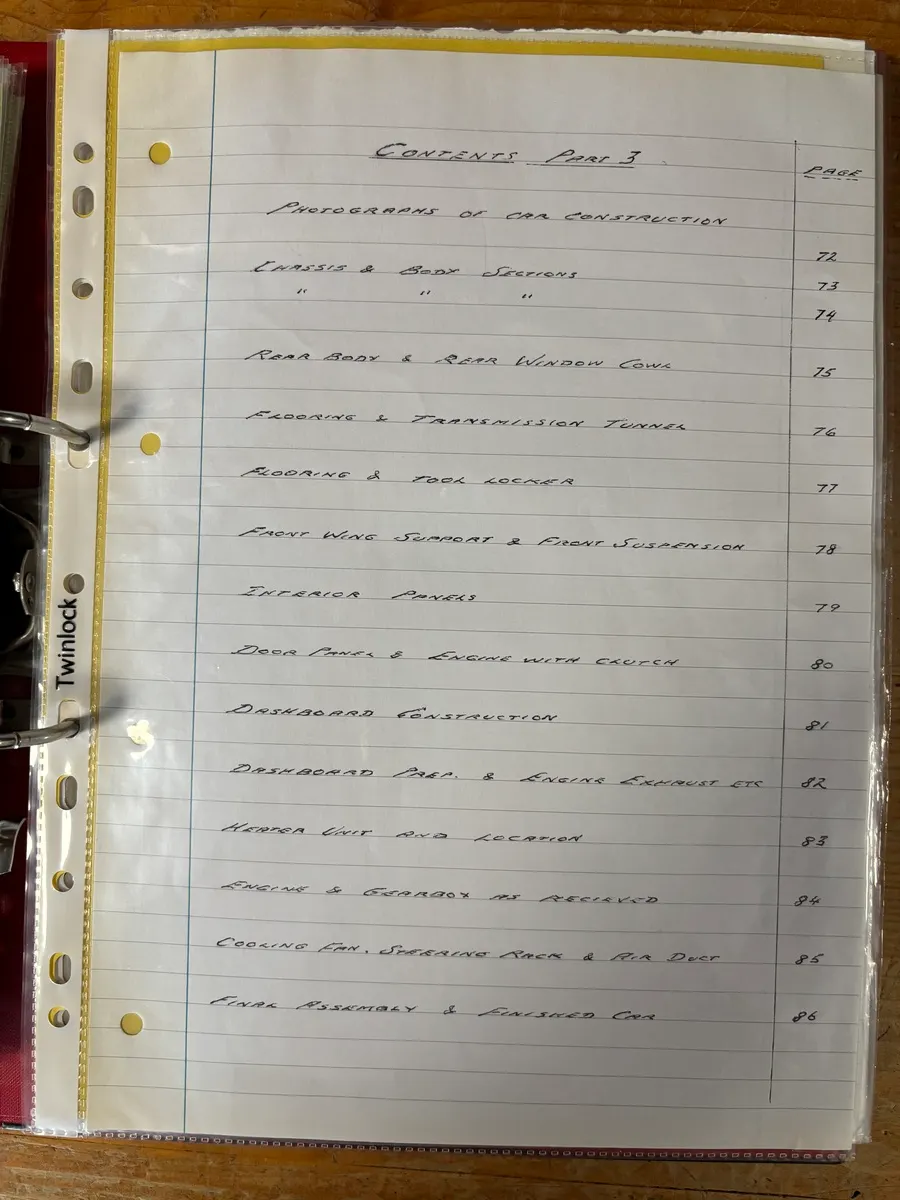 CONTENTS PART 3
PAGE
PHOTOGRAPHS OF CAR CONSTRUCTION
72
CHASSIS & BODY SECTIONS 73
" " " 74
REAR BODY & REAR WINDOW COWL 75
FLOORING & TRANSMISSION TUNNEL 76
FLOORING & TOOL LOCKER 77
FRONT WING SUPPORT & FRONT SUSPENSION 78
INTERIOR PANELS 79
DOOR PANEL & ENGINE WITH CLUTCH 80
DASHBOARD CONSTRUCTION 81
DASHBOARD PREP. & ENGINE EXHAUST ETC 82
HEATER UNIT AND LOCATION 83
ENGINE & GEARBOX AS RECIEVED 84
COOLING FAN. STEERING RACK & AIR DUCT 85
FINAL ASSEMBLY & FINISHED CAR 86
Twinlock